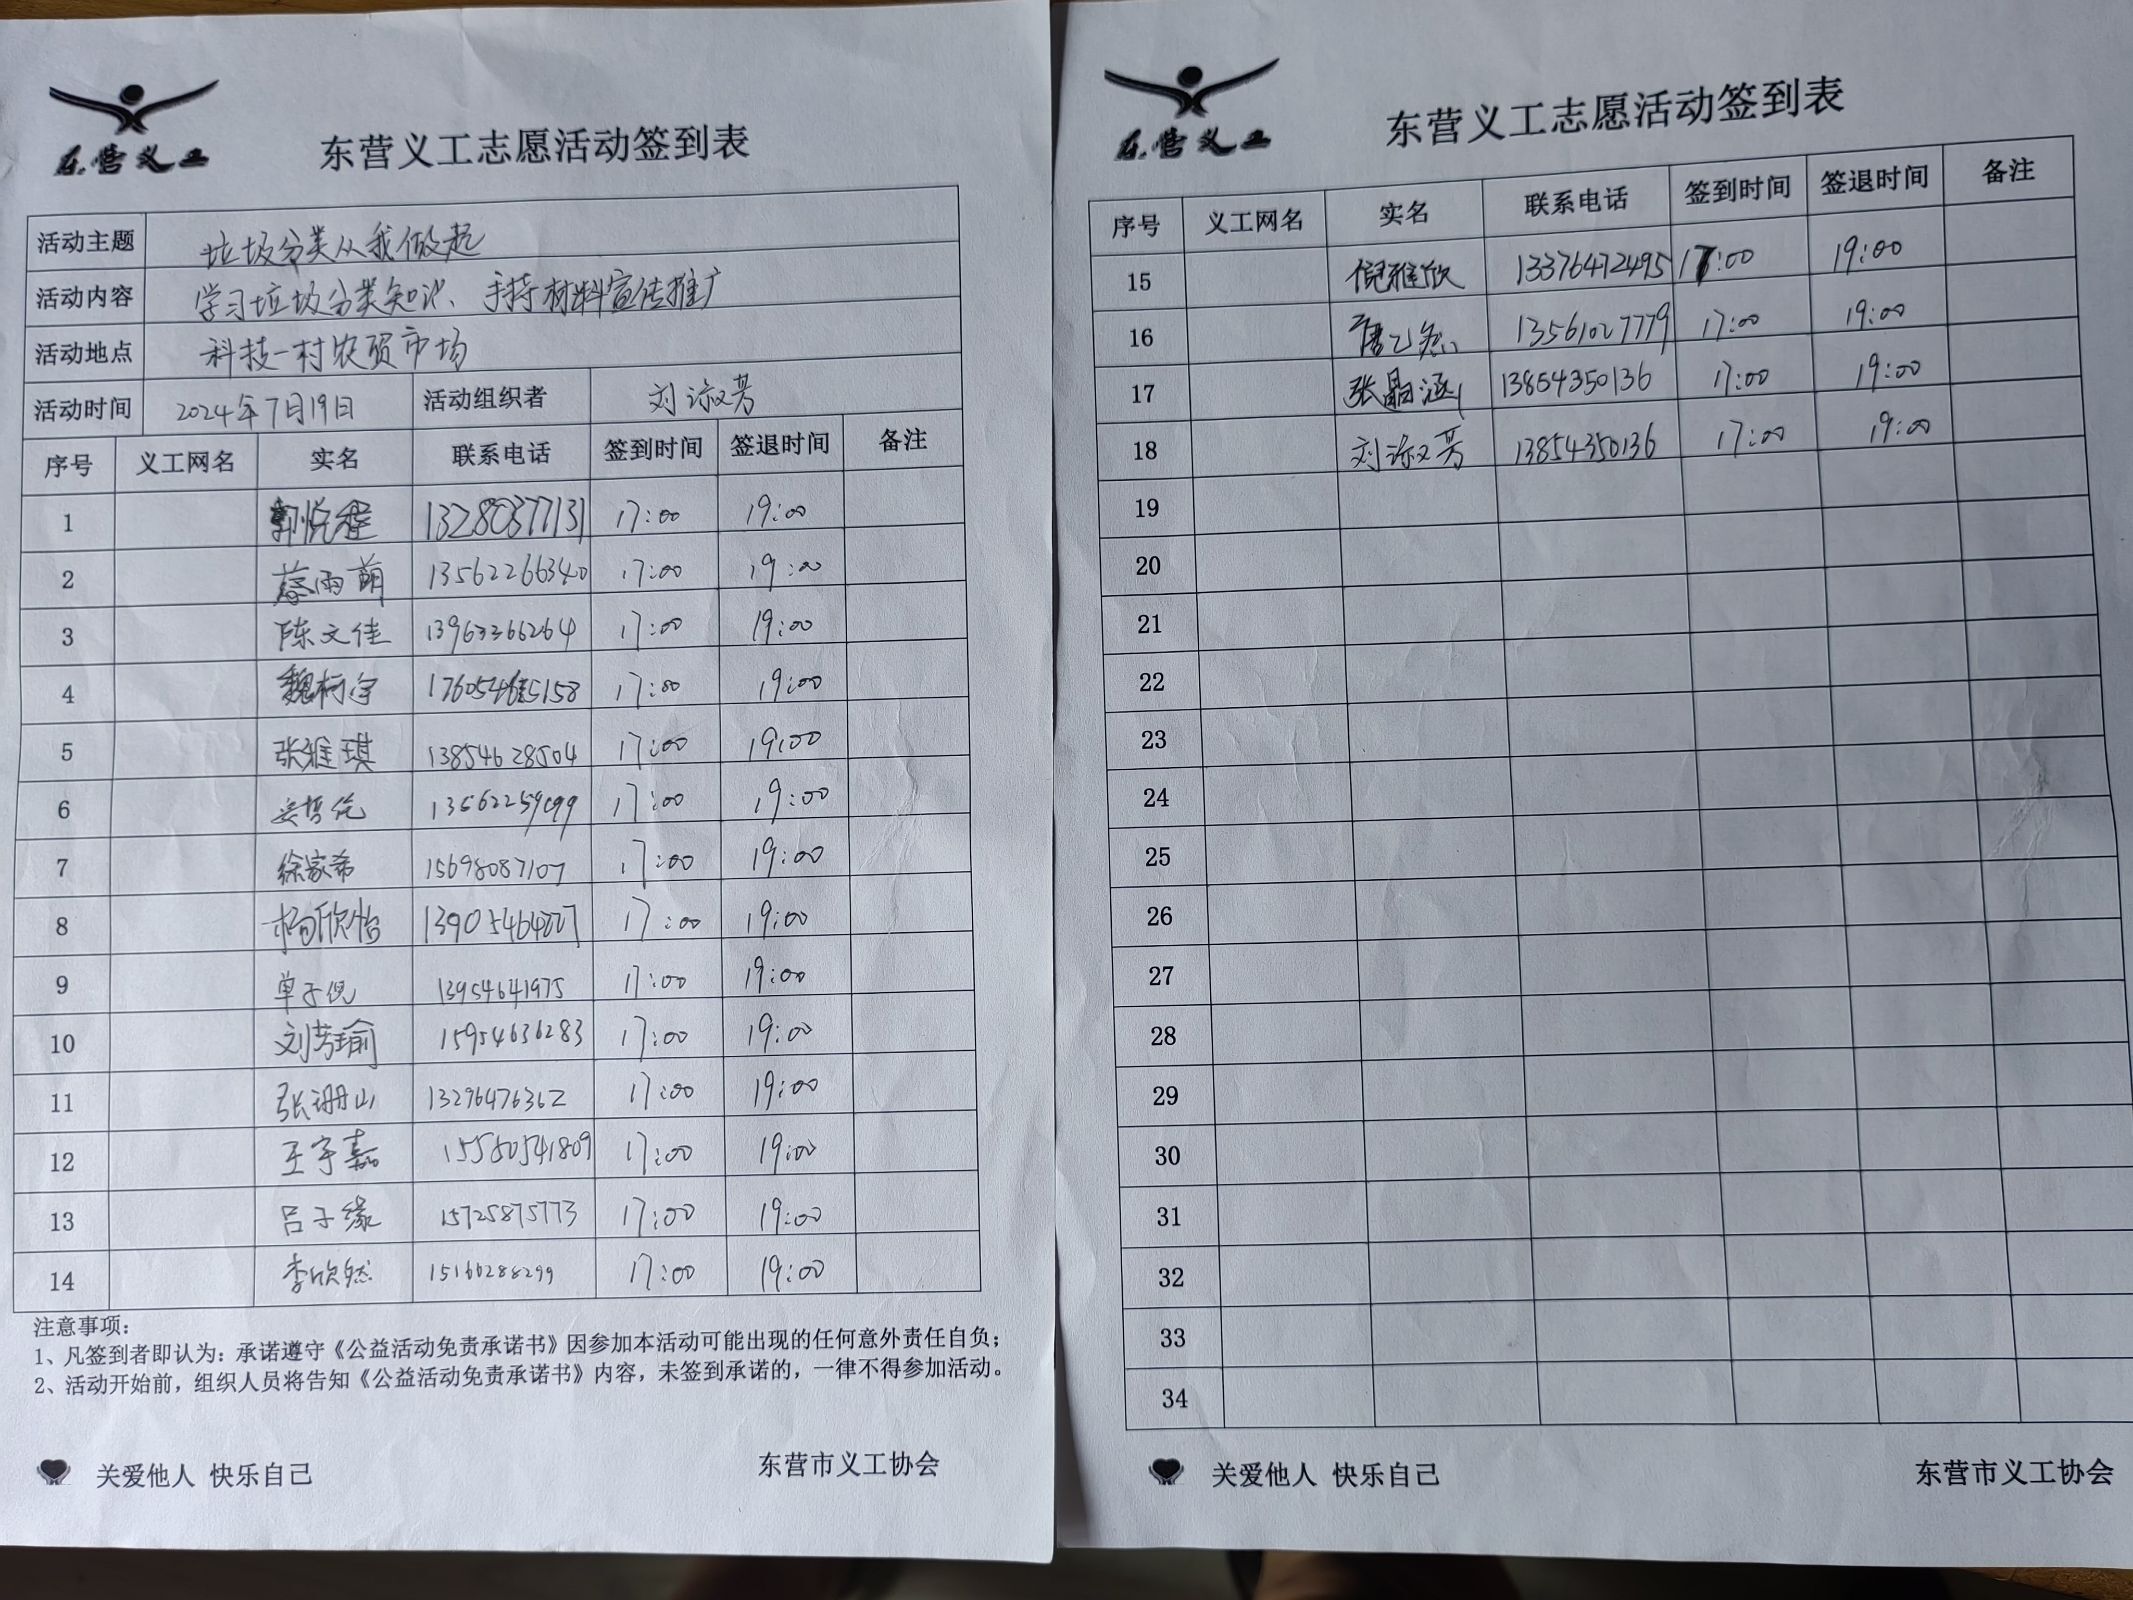 东营义工
东营义工志愿活动签到表
活动主题 垃圾分类从我做起
活动内容 学习垃圾分类知识、手持材料宣传推广
活动地点 科技一村农贸市场
活动时间 2024年7月19日 活动组织者 刘淑芳
序号 义工网名 实名 联系电话 签到时间 签退时间 备注
1 郭悦程 13280377131 17:00 19:00
2 蔡雨萌 13562266340 17:00 19:00
3 陈文佳 13963366264 17:00 19:00
4 魏柯宇 17:00 19:00
5 张雅琪 13854628504 17:00 19:00
6 17:00 19:00
7 徐家希 15698087107 17:00 19:00
8 杨欣怡 17:00 19:00
9 单子倪 13954641975 17:00 19:00
10 刘芳瑜 15954636283 17:00 19:00
11 张珊山 13296476362 17:00 19:00
12 王宇嘉 15580541809 17:00 19:00
13 吕子缘 15725875773 17:00 19:00
14 李欣然 15166288299 17:00 19:00
注意事项:
1、凡签到者即认为:承诺遵守《公益活动免责承诺书》因参加本活动可能出现的任何意外责任自负;
2、活动开始前,组织人员将告知《公益活动免责承诺书》内容,未签到承诺的,一律不得参加活动。
关爱他人 快乐自己
东营市义工协会
东营义工
东营义工志愿活动签到表
序号 义工网名 实名 联系电话 签到时间 签退时间 备注
15 倪雅欣 13376472495 17:00 19:00
16 唐乙然 13561027779 17:00 19:00
17 张晶涵 13854350136 17:00 19:00
18 刘淑芳 13854350136 17:00 19:00
19
20
21
22
23
24
25
26
27
28
29
30
31
32
33
34
关爱他人 快乐自己
东营市义工协会